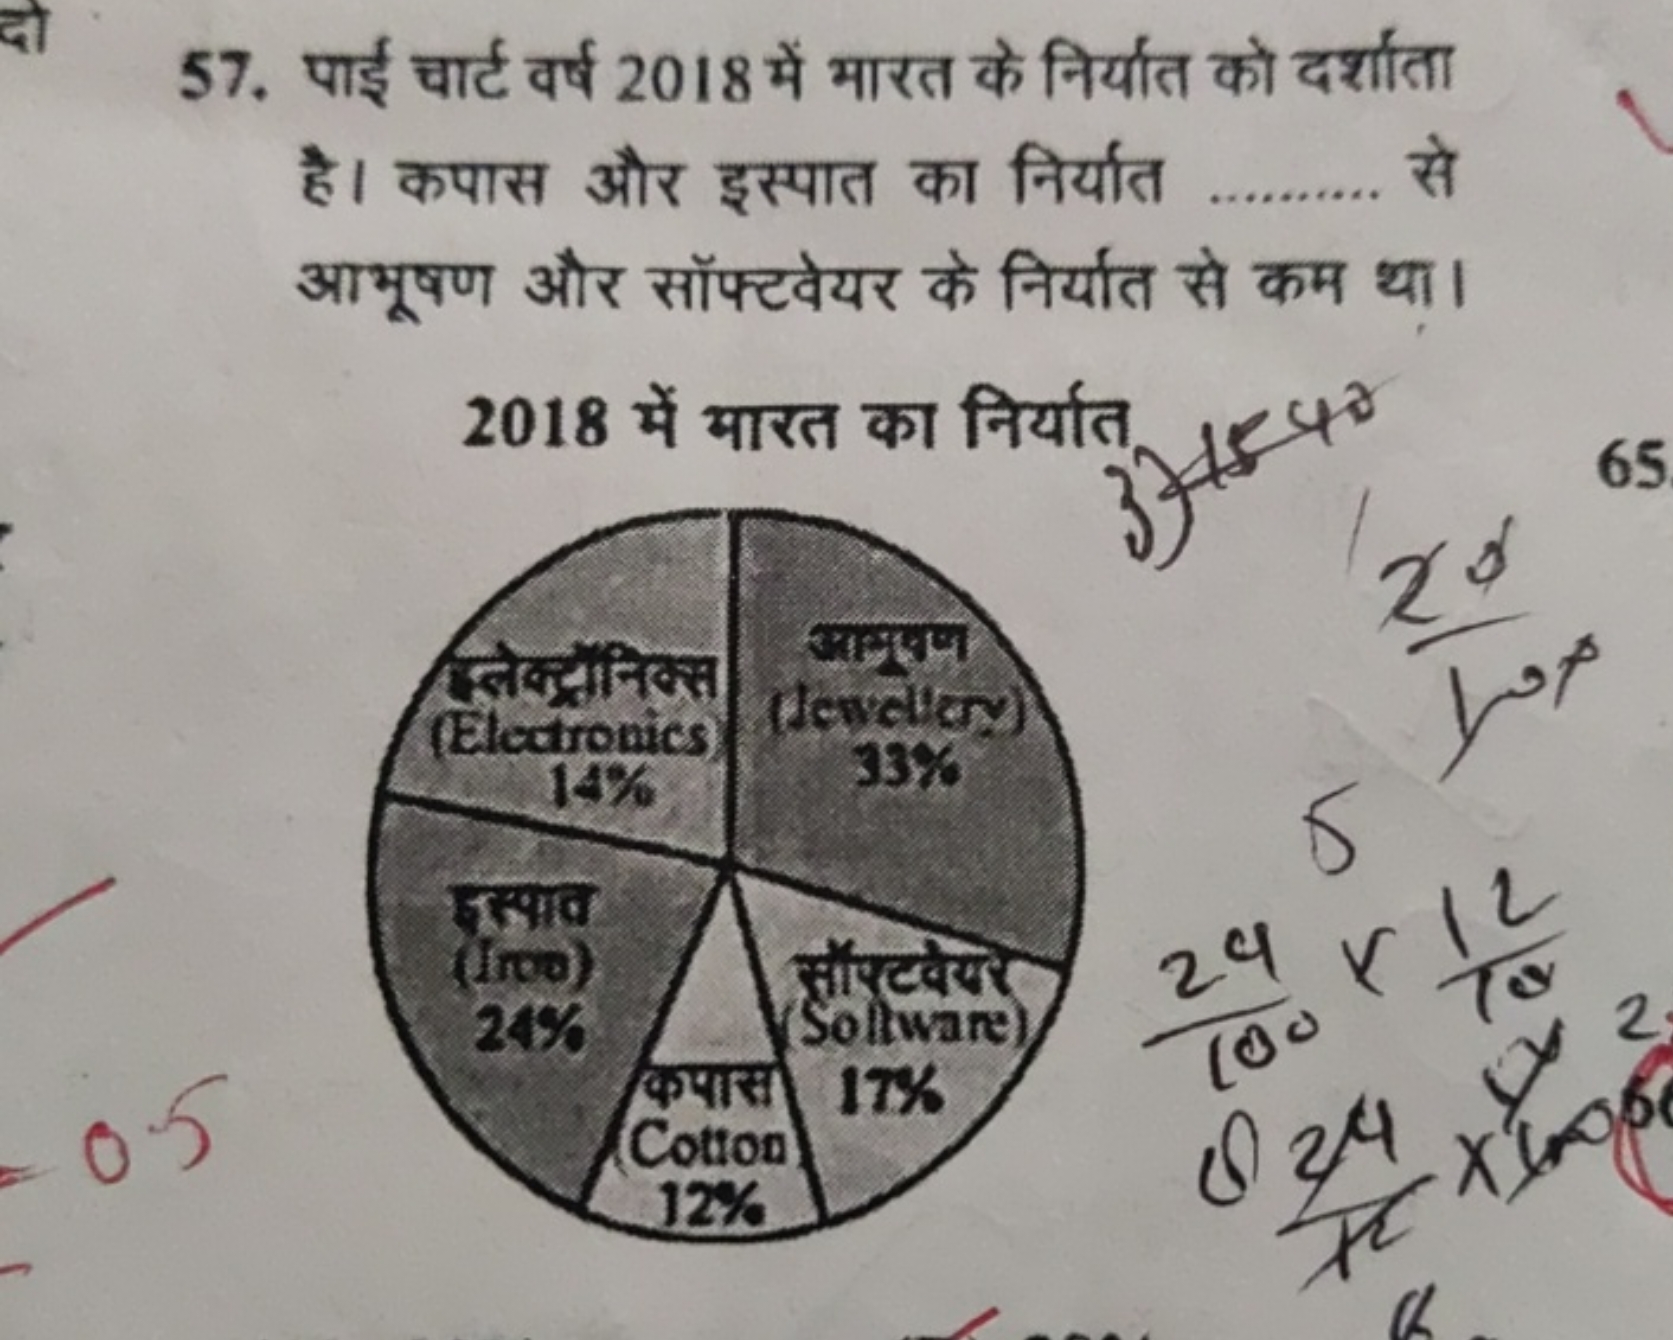 दो
57. पाई चार्ट वर्ष 2018 में भारत के निर्यात को दर्शाता
है। कपास और इस्पात का निर्यात .......... से
आभूषण और सॉफ्टवेयर के निर्यात से कम था।
2018 में भारत का निर्यात
65.
इलेक्ट्रॉनिक्स
(Electronics)
14%
आभूषण
(Jewellery)
33%
इस्पात
(Iron)
24%
सॉफ्टवेयर
(Software)
17%
कपास
Cotton
12%
20
100
5
24
100
x
12
10
24
12
0.5